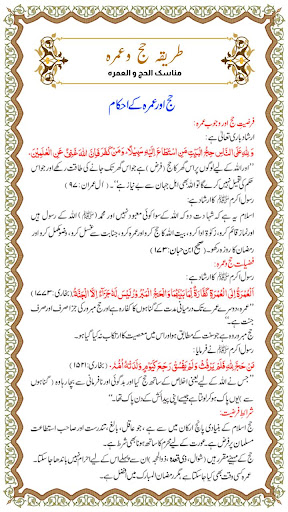 طریقہ حج و عمرہ
مناسک الحج و العمره
حج اور عمرہ کے احکام
فرضیتِ حج اور وجوبِ عمرہ:
ارشاد باری تعالیٰ ہے:
وَلِلّٰهِ عَلَى النَّاسِ حِجُّ الْبَيْتِ مَنِ اسْتَطَاعَ إِلَيْهِ سَبِيلًا، وَمَنْ كَفَرَ فَإِنَّ اللهَ غَنِيٌّ عَنِ الْعٰلَمِيْنَ.
”اور اللہ کے لیے لوگوں پر اس گھر کا حج (فرض) ہے جو اس گھر تک جانے کی طاقت رکھے اور جو اس
حکم کی تعمیل نہیں کرے گا تو اللہ بھی اہل جہان سے بے نیاز ہے“۔ (آل عمران: ٩٧)
رسول اکرم (ﷺ) کا ارشاد ہے:
اسلام یہ ہے کہ شہادت دو کہ اللہ کے سوا کوئی معبود نہیں اور محمد (ﷺ) اللہ کے رسول ہیں
اور نماز قائم کرو، زکوٰۃ ادا کرو، بیت اللہ کا حج کرو اور عمرہ کرو، جنابت سے غسل کرو، وضو مکمل کرو اور
رمضان کا روزہ رکھو۔ (صحیح ابن حبان: ١٧٣)
فضیلت حج و عمرہ:
رسول اکرم (ﷺ) کا ارشاد ہے:
اَلْعُمْرَةُ إِلَى الْعُمْرَةِ كَفَّارَةٌ لِّمَا بَيْنَهُمَا وَالْحَجُّ الْمَبْرُورُ لَيْسَ لَهُ جَزَآءٌ إِلَّا الْجَنَّةُ. (بخاری: ١٧٧٣)
”عمرہ دوسرے عمرے تک درمیانی مدت کے گناہوں کا کفارہ ہے اور حج مبرور کی جزا صرف اور صرف
جنت ہے۔“
حج مبرور وہ ہے جو سنت کے مطابق ہو اور اس میں معصیت کا ارتکاب نہ کیا گیا ہو۔
رسول اکرم (ﷺ) نے فرمایا:
مَنْ حَجَّ لِلّٰهِ فَلَمْ يَرْفُثْ وَلَمْ يَفْسُقْ رَجَعَ كَيَوْمِ وَلَدَتْهُ أُمُّهُ. (بخاری: ١٥٢١)
”جس نے اللہ کے لیے یعنی اخلاص کے ساتھ حج کیا اور بدگوئی اور نافرمانی سے بچا رہا وہ (گناہوں
سے) یوں پاک ہو کر لوٹتا ہے جیسے اپنی پیدائش کے دن پاک تھا۔“
شرائط فرضیت:
حج اسلام کے بنیادی پانچ ارکان میں سے ہے، جو عاقل، بالغ، تندرست اور صاحب استطاعت
مسلمان پر فرض ہے۔ عورت کے لیے محرم کا ساتھ ہونا بھی شرط ہے۔
حج کے مہینے مقرر ہیں (شوال، ذی قعدہ، ذوالحج)، ان سے پہلے اس کے لیے احرام نہیں باندھا جا سکتا۔
عمرہ کسی وقت بھی کیا جا سکتا ہے مگر رمضان المبارک میں افضل ہے۔